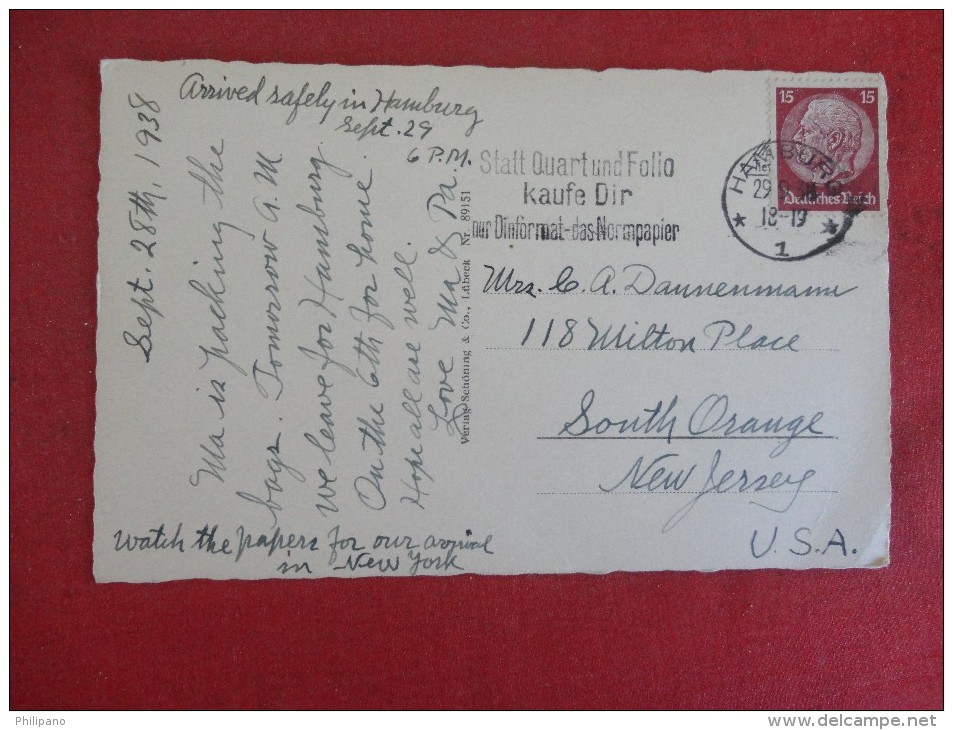 Arrived safely in Hamburg
Sept. 29
6 P.M.
Sept. 28th, 1938
Ma is packing the
bags. Tomorrow A.M
we leave for Hamburg.
On the 6th for home.
Hope all are well.
Love Ma & Pa.
Watch the papers for our arrival
in New York
Verlag Schöning & Co., Lübeck Nr. 89151
Statt Quart und Folio
kaufe Dir
nur Dinformat-das Normpapier
HAMBURG
29.9.38
18-19
* 1 *
15 15
Deutsches Reich
Mrs. C. A. Dannenmann
118 Milton Place
South Orange
New Jersey
U.S.A.
Philipano
http://www.delcampe.net